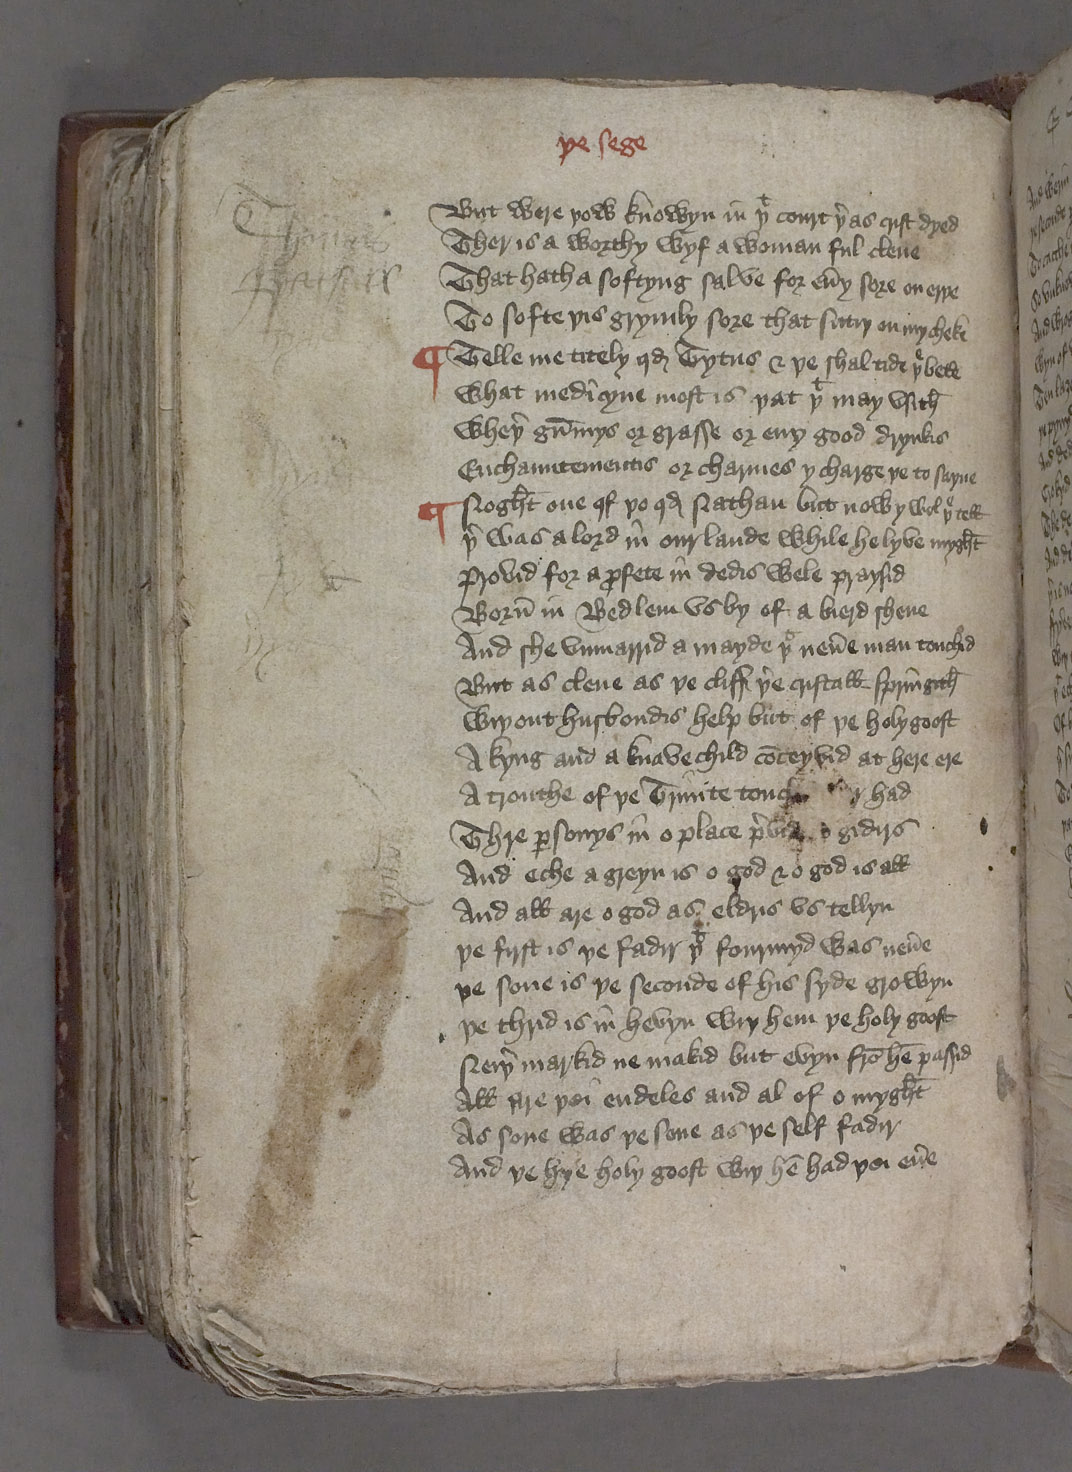 þe sege
But were þow knowyn in þt court þer as crist dyed
Ther is a worthy wyf a woman ful clene
That hath a softyng salve for euy sore on erþe
To softe þis grymly sore that sittiþ on my cheke
¶ Telle me titely qd Tytus & þe shal tide þe bete
What medicyne most is þat þt may vsith
Wheþer gumys or grasse or eny good drynkis
Enchauntementis or charmes y charge þe to sayne
¶ Noght one of þo qd Nathan but now y wol þe tell
þer was a lord in our lande while he lyve myght
Provid for a profete in dedis wele praysid
Born in Bedlem vs by of a bierd shene
And she vnmarrid a mayde þt neuer man touchid
But as clene as þe cliff þer cristall springith
Wiþ out husbondis help but of þe holy goost
A kyng and a knave child coceyvid at here ere
A trouthe of þe Trinite touch had
Thre persouys in o place gidirs
And eche a greyn is o god & o god is all
And all are o god as eldris vs tellyn
þe first is þe fadir þt fourmyd was neuer
þe sone is þe seconde of his syde growyn
þe thrid is in hevyn wiþ hem þe holy goost
Neiþer markid ne makid but evyn fro he passid
All are þei endeles and al of o myght
As sone was þe sone as þe self fadir
And þe hye holy goost wiþ he had þei euer